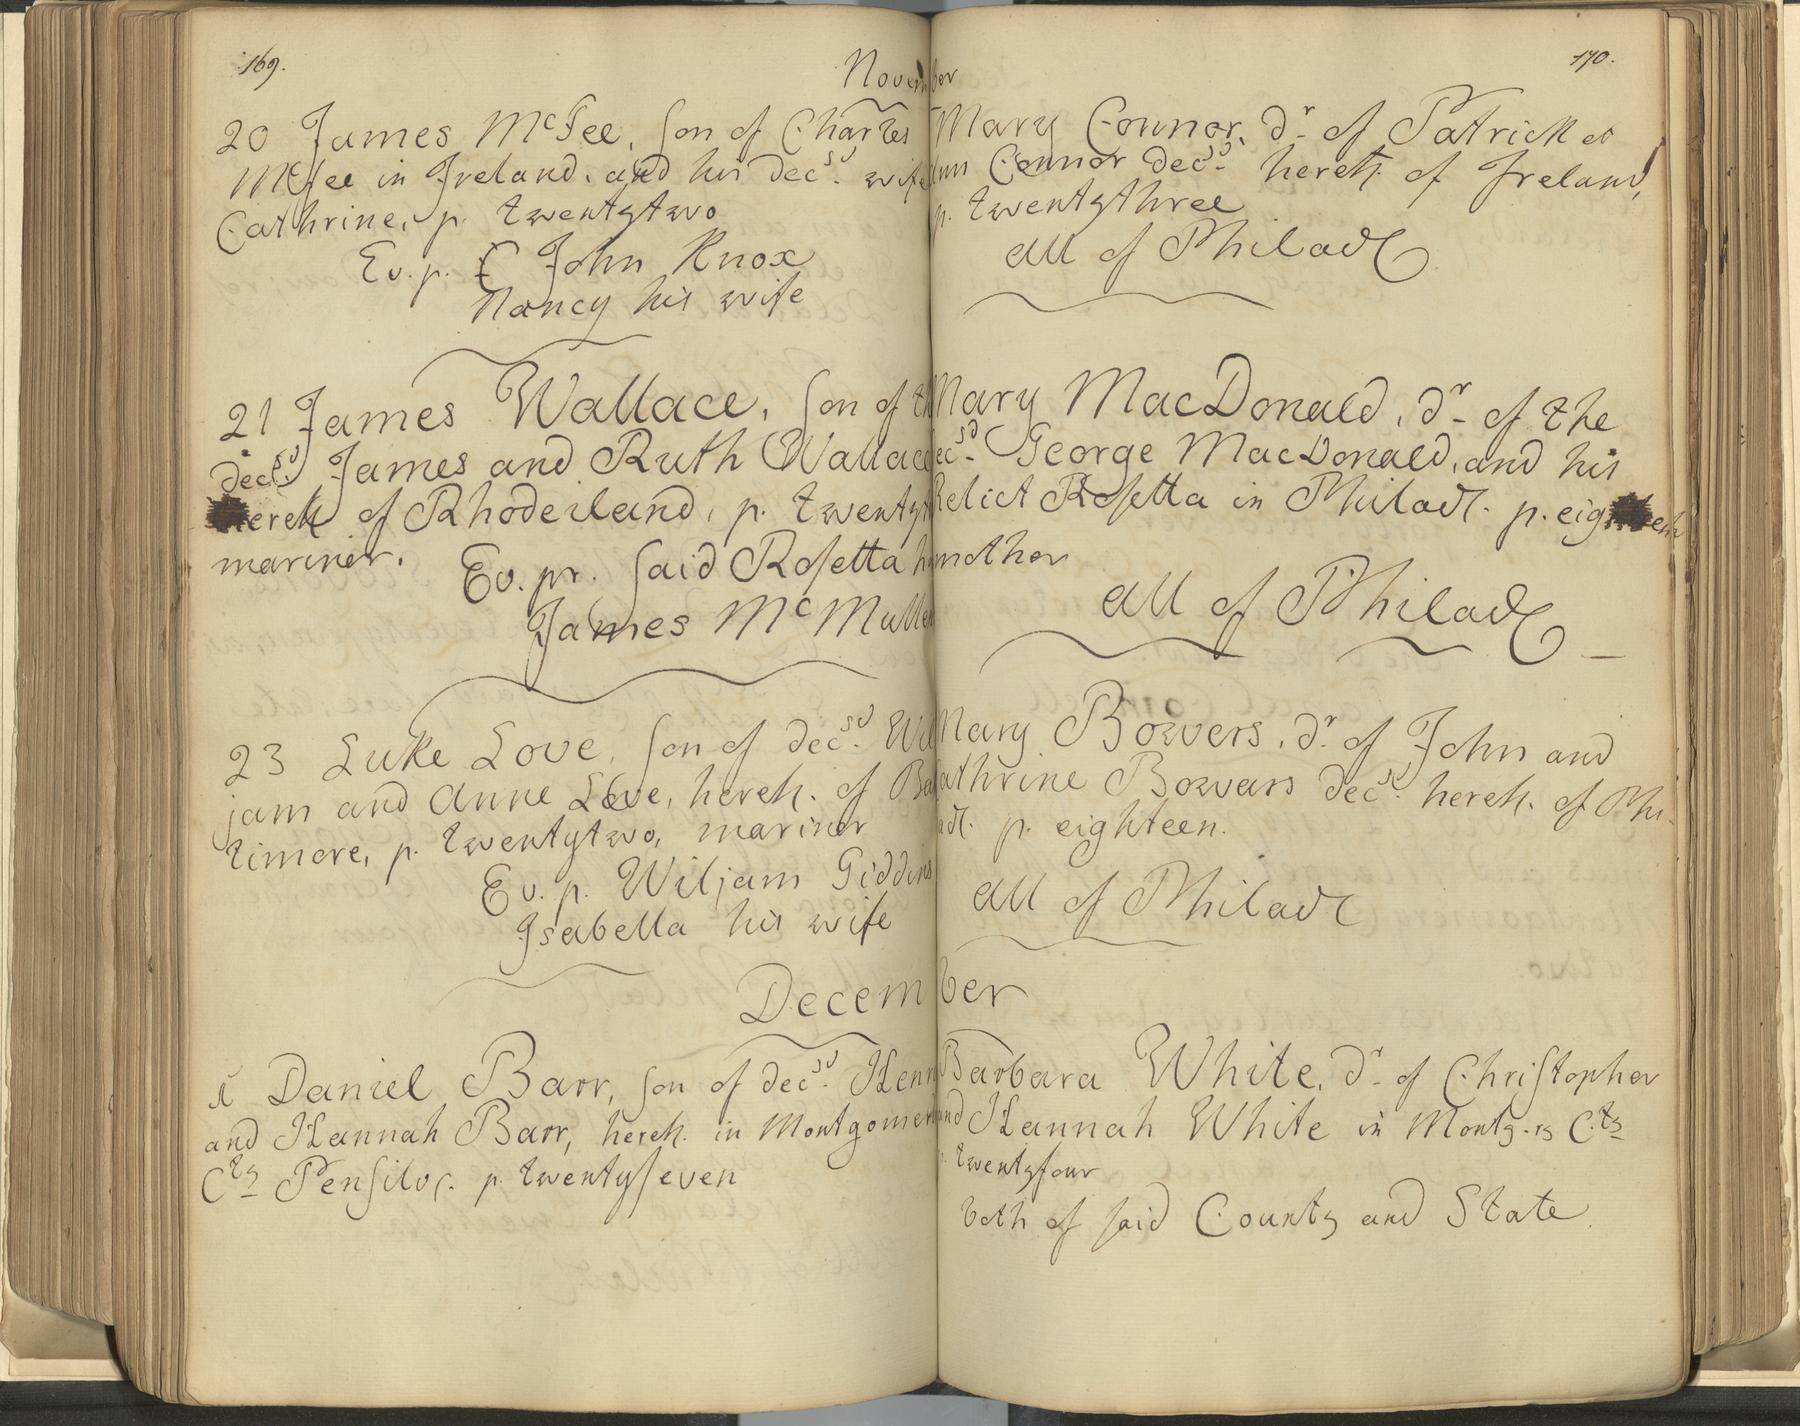 169.
November
20 James McFee, son of Charles
McFee in Ireland, and his decsd. wife
Cathrine, p. twentytwo
Ev. p. John Knox
Nancy his wife
21 James Wallace, son of th
decsd. James and Ruth Wallace
hereto. of Rhodeiland, p. twentyt
mariner.
Ev. pr. said Rosetta h
James McMullen
23 Luke Love, son of decsd. Wil
jam and Anne Love, hereto. of Bal
timore, p. twentytwo, mariner
Ev. p. Wiljam Giddins
Isabella his wife
December
1 Daniel Barr, son of decsd. Henr
and Hannah Barr, hereto. in Montgomer
Cty Pensilv. p. twentyseven
170.
Mary Connor, dr. of Patrick et
Ann Connor decsd. hereto. of Ireland,
p. twentythree
all of Philad
Mary MacDonald, dr. of the
decsd. George MacDonald, and his
Relict Rosetta in Philad. p. eighteen
mother
all of Philad
Mary Bowers, dr. of John and
Cathrine Bowars decsd. hereto. of Phi-
lad. p. eighteen.
all of Philad
Barbara White, dr. of Christopher
and Hannah White in Montg.ry Cty
p. twentyfour
both of said County and State.